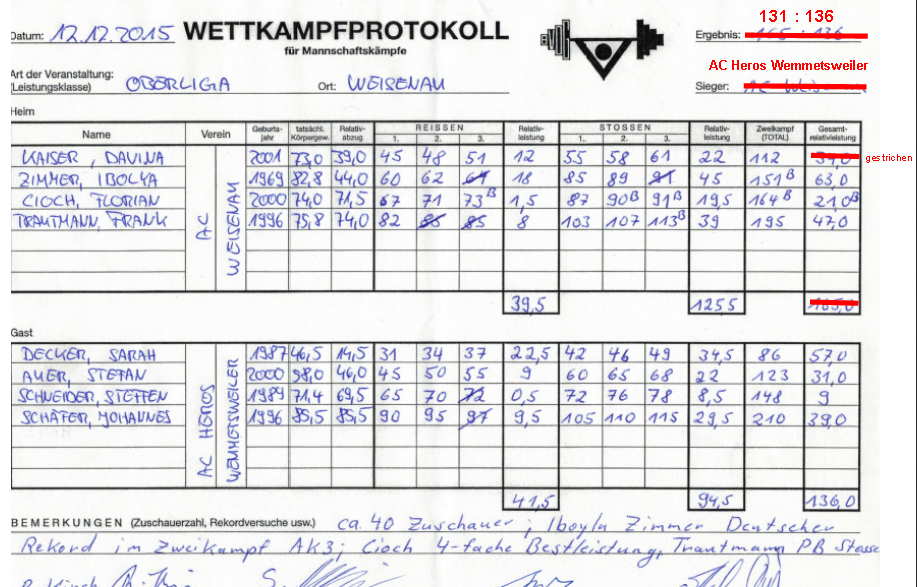 131 : 136
Datum: 12.12.2015 WETTKAMPFPROTOKOLL Ergebnis: 165 : 136
für Mannschaftskämpfe
AC Heros Wemmetsweiler
Art der Veranstaltung:
(Leistungsklasse) OBERLIGA Ort: WEISENAU Sieger: AC Wei
Heim
Name Verein Geburts-jahr tatsächl. Körpergew. Relativ-abzug REISSEN 1. 2. 3. Relativ-leistung STOSSEN 1. 2. 3. Relativ-leistung Zweikampf (TOTAL) Gesamt-relativleistung
KAISER, DAVINA 2001 73,0 39,0 45 48 51 12 55 58 61 22 112 34,0 gestrichen
ZIMMER, IBOLYA 1969 82,8 44,0 60 62 64 18 85 89 91 45 151B 63,0
CIOCH, FLORIAN 2000 74,0 71,5 67 71 73B 1,5 87 90B 91B 19,5 164B 21,0B
TRAUTMANN, FRANK 1996 75,8 74,0 82 85 85 8 103 107 113B 39 195 47,0
AC WEISENAU
39,5 125,5 165,0
Gast
DECKER, SARAH 1987 46,5 14,5 31 34 37 22,5 42 46 49 34,5 86 57,0
AUER, STEFAN 2000 98,0 46,0 45 50 55 9 60 65 68 22 123 31,0
SCHNEIDER, STEFFEN 1989 71,4 69,5 65 70 72 0,5 72 76 78 8,5 148 9
SCHÄFER, JOHANNES 1996 85,5 85,5 90 95 97 9,5 105 110 115 29,5 210 39,0
AC HEROS WEMMETSWEILER
41,5 94,5 136,0
BEMERKUNGEN (Zuschauerzahl, Rekordversuche usw.) ca. 40 Zuschauer; Iboyla Zimmer Deutscher
Rekord im Zweikampf AK3; Cioch 4-fache Bestleistung, Trautmann PB Stosse